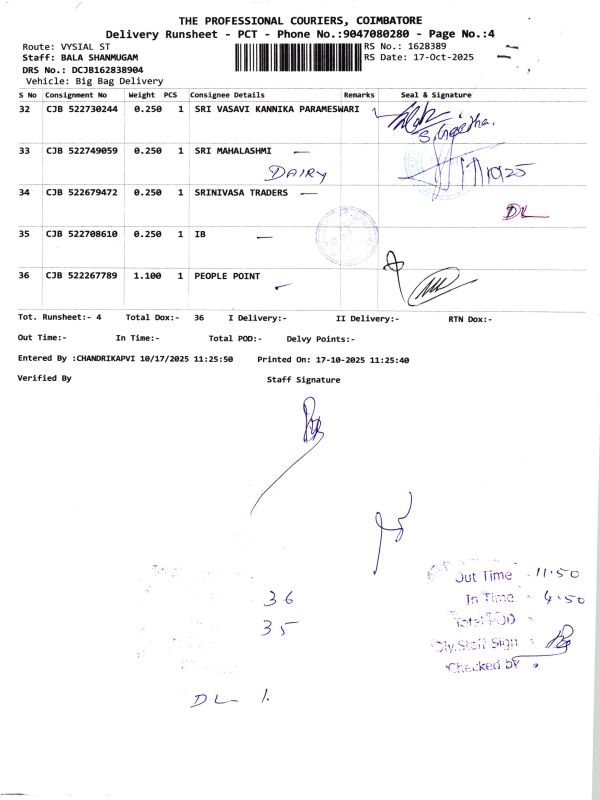 THE PROFESSIONAL COURIERS, COIMBATORE
Delivery Runsheet - PCT - Phone No.:9047080280 - Page No.:4
Route: VYSIAL ST
RS No.: 1628389
Staff: BALA SHANMUGAM
RS Date: 17-Oct-2025
DRS No.: DCJB162838904
Vehicle: Big Bag Delivery
S No Consignment No Weight PCS Consignee Details Remarks Seal & Signature
32 CJB 522730244 0.250 1 SRI VASAVI KANNIKA PARAMESWARI
33 CJB 522749059 0.250 1 SRI MAHALASHMI
DAIRY
34 CJB 522679472 0.250 1 SRINIVASA TRADERS
DL
35 CJB 522708610 0.250 1 IB
36 CJB 522267789 1.100 1 PEOPLE POINT
Tot. Runsheet:- 4 Total Dox:- 36 I Delivery:- II Delivery:- RTN Dox:-
Out Time:- In Time:- Total POD:- Delvy Points:-
Entered By :CHANDRIKAPVI 10/17/2025 11:25:50 Printed On: 17-10-2025 11:25:40
Verified By Staff Signature
Out Time - 11.50
36
In Time - 4.50
35
Total POD
Dly.Staff Sign
Checked by
DL 1.